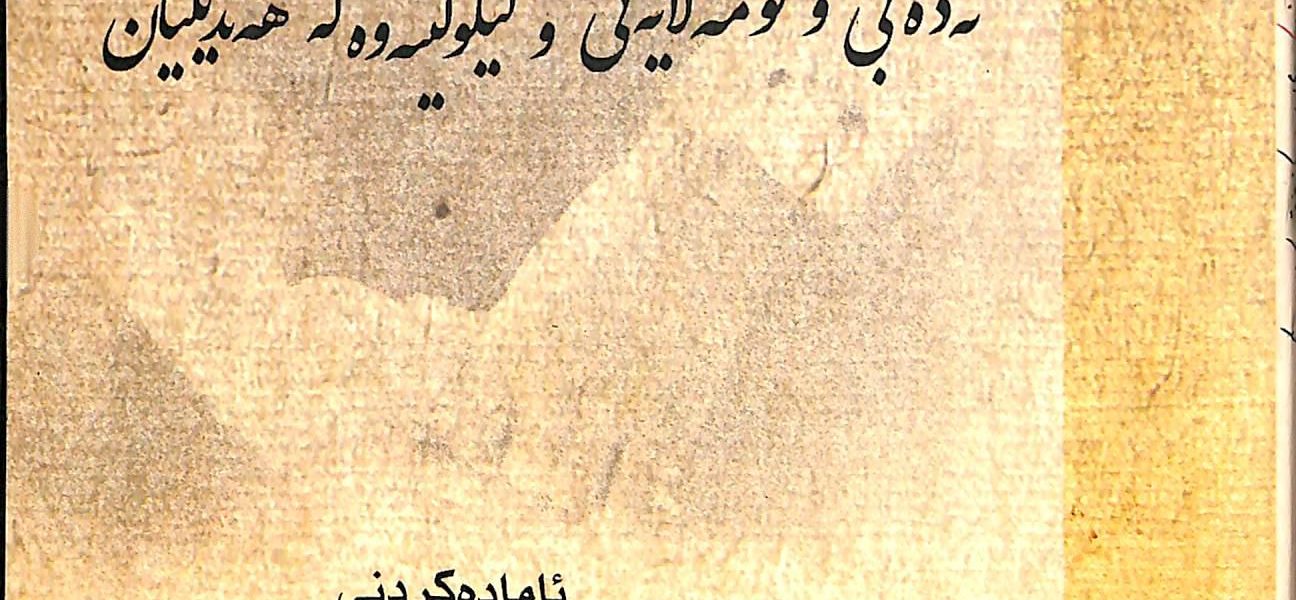 ئەدەبی و کۆمەڵایەتی و لێکۆڵینەوە لە هەندێکیان
ئامادەکردنی